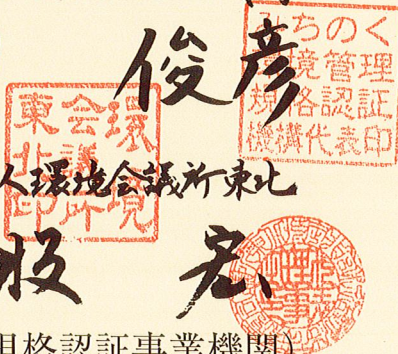 俊彦
みちのく
環境管理
規格認証
機構代表印
環境
会議所
東北印
人環境会議所東北
宏
規格認証事業機関)